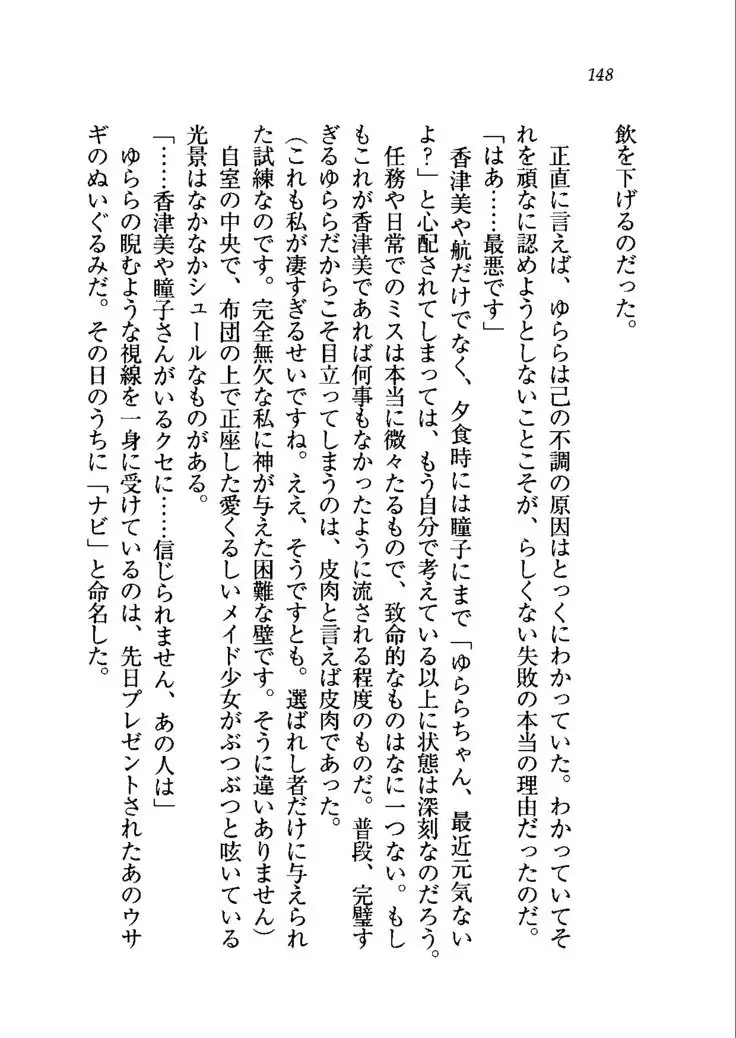 148
飲を下げるのだった。
正直に言えば、ゆららは己の不調の原因はとっくにわかっていた。わかっていてそ
れを頑なに認めようとしないことこそが、らしくない失敗の本当の理由だったのだ。
「はあ……最悪です」
香津美や航だけでなく、夕食時には瞳子にまで「ゆららちゃん、最近元気ない
よ？」と心配されてしまっては、もう自分で考えている以上に状態は深刻なのだろう。
任務や日常でのミスは本当に微々たるもので、致命的なものはなに一つない。もし
もこれが香津美であれば何事もなかったように流される程度のものだ。普段、完璧す
ぎるゆららだからこそ目立ってしまうのは、皮肉と言えば皮肉であった。
（これも私が凄すぎるせいですね。ええ、そうですとも。選ばれし者だけに与えられ
た試練なのです。完全無欠な私に神が与えた困難な壁です。そうに違いありません）
自室の中央で、布団の上で正座した愛くるしいメイド少女がぶつぶつと呟いている
光景はなかなかシュールなものがある。
「……香津美や瞳子さんがいるクセに……信じられません、あの人は」
ゆららの睨むような視線を一身に受けているのは、先日プレゼントされたあのウサ
ギのぬいぐるみだ。その日のうちに「ナビ」と命名した。